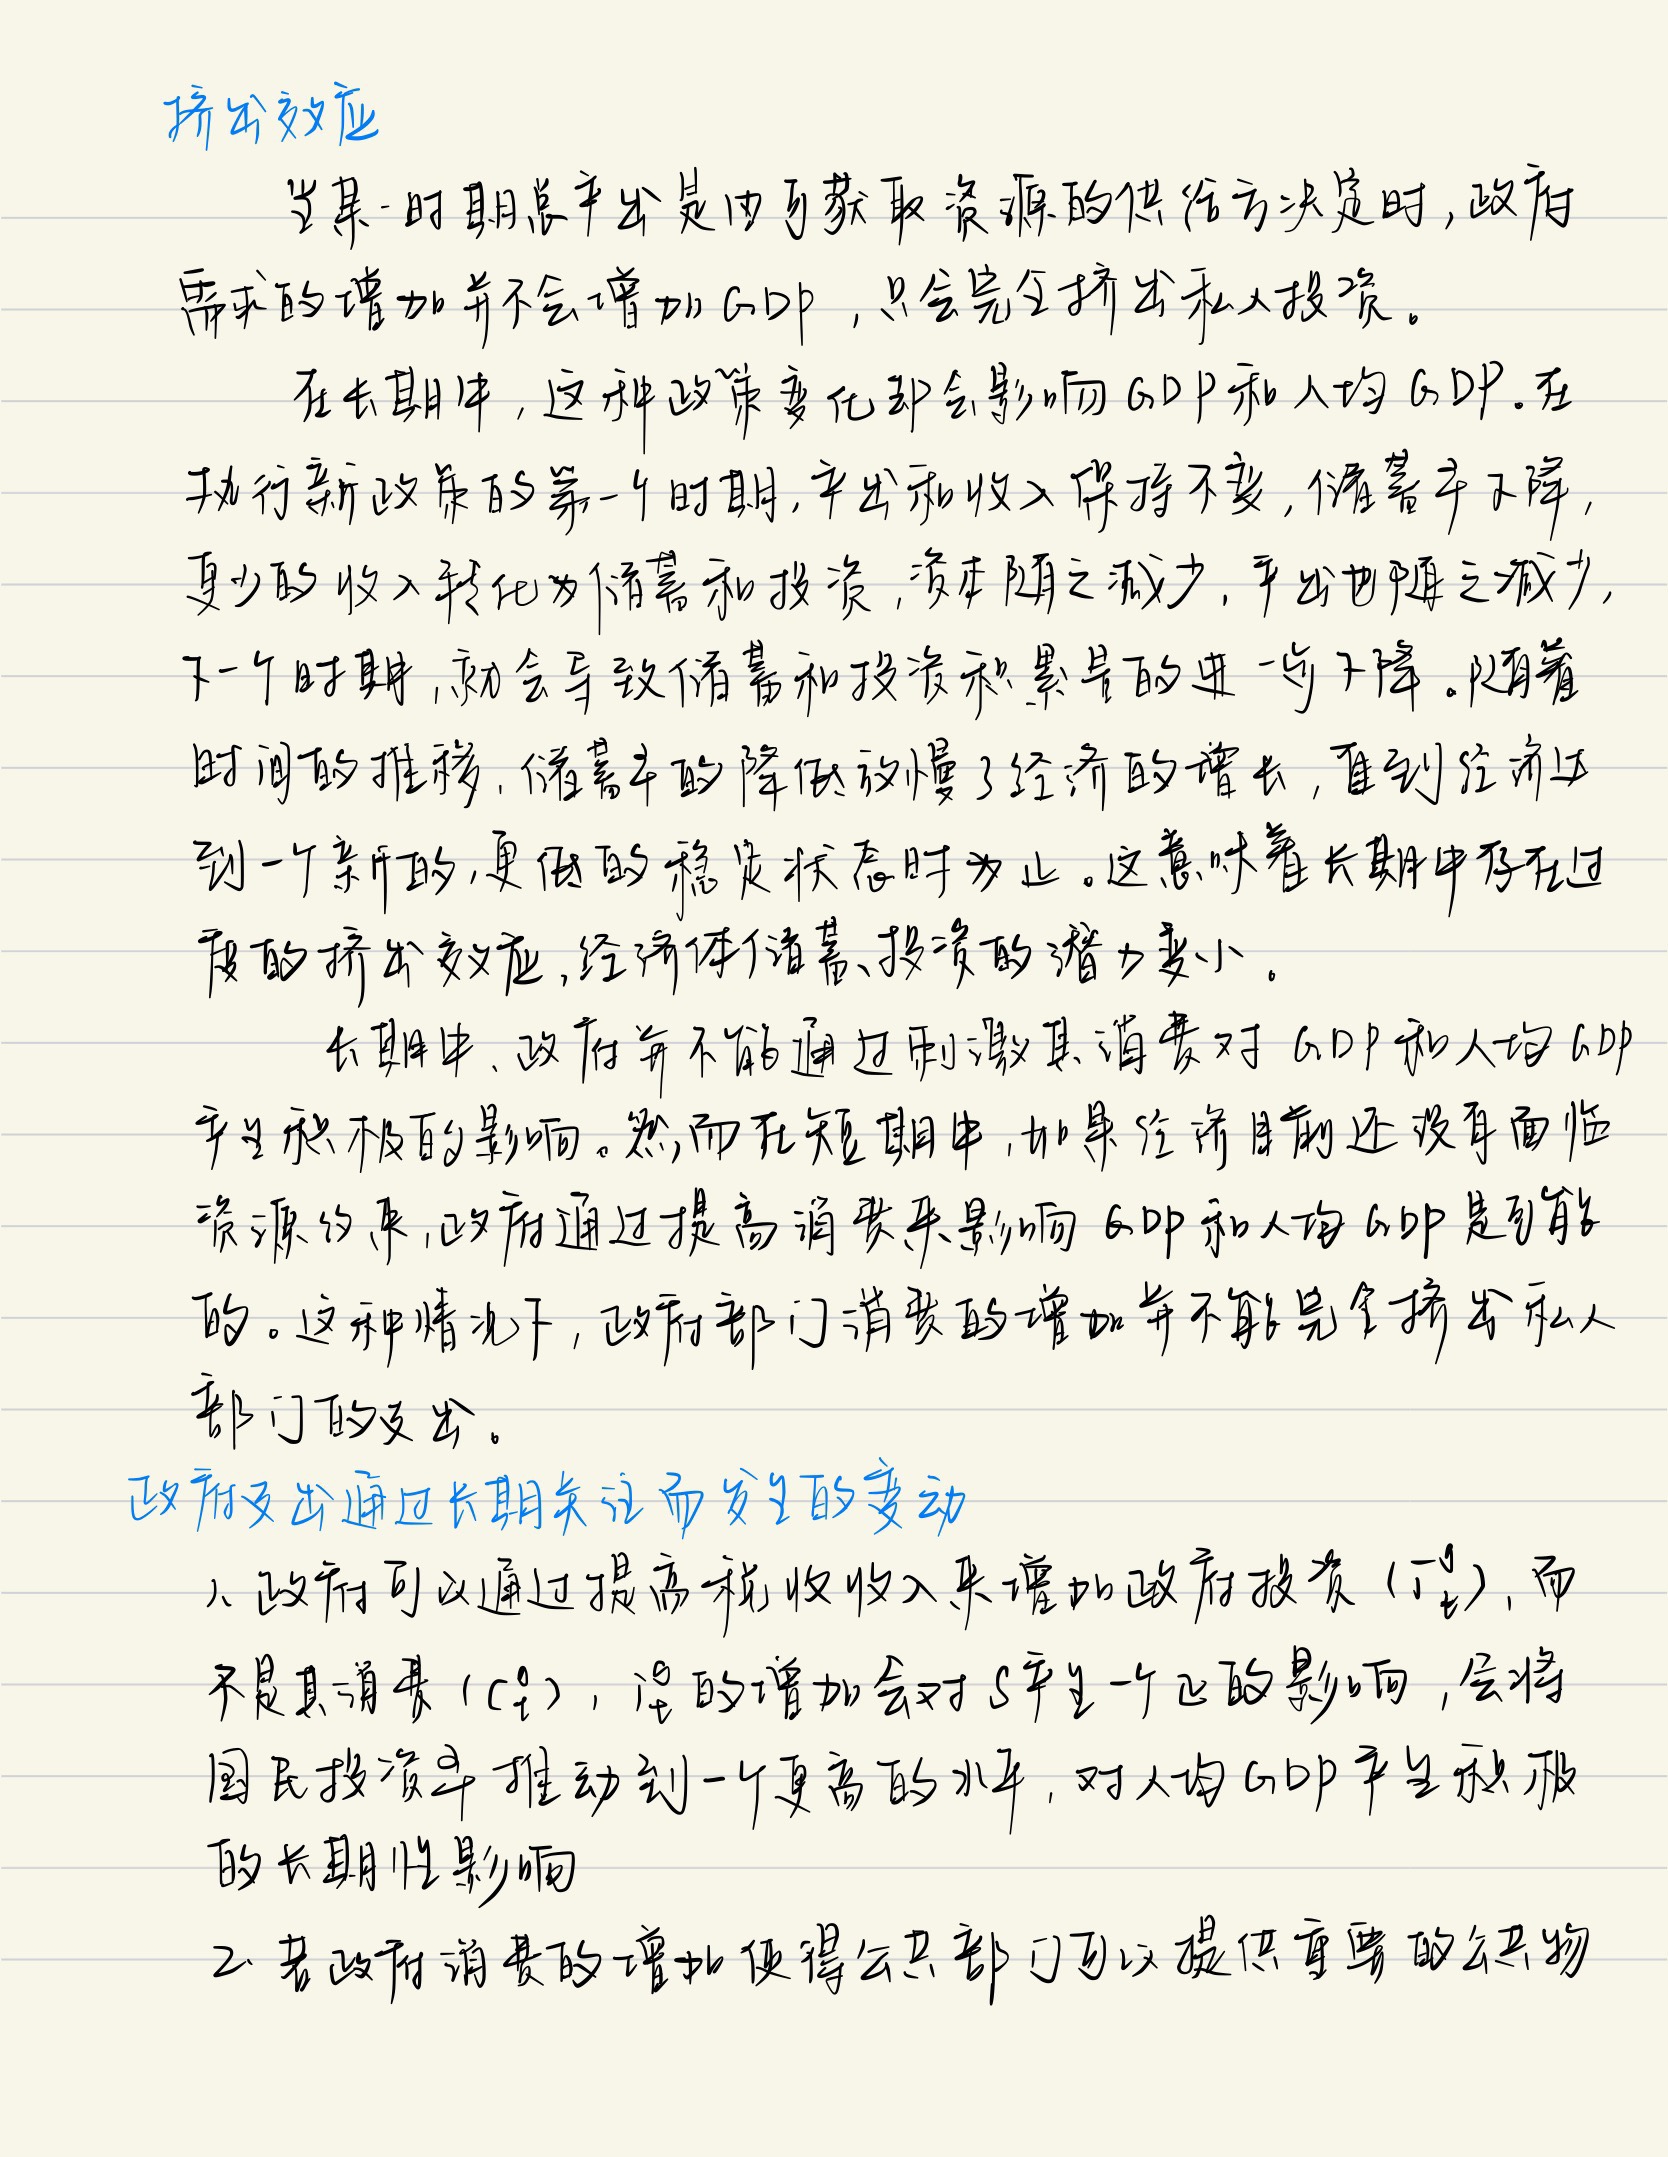 挤出效应
当某一时期总产出是由可获取资源的供给方决定时，政府
需求的增加并不会增加GDP，只会完全挤出私人投资。
在长期中，这种政策变化却会影响GDP和人均GDP。在
执行新政策的第一个时期，产出和收入保持不变，储蓄率下降，
更少的收入转化为储蓄和投资，资本随之减少，产出也随之减少，
下一个时期，就会导致储蓄和投资积累量的进一步下降。随着
时间的推移，储蓄率的降低放慢了经济的增长，直到经济达
到一个新的，更低的稳定状态时为止。这意味着长期中存在过
度的挤出效应，经济体储蓄、投资的潜力变小。
长期中、政府并不能通过刺激其消费对GDP和人均GDP
产生积极的影响。然而在短期中，如果经济目前还没有面临
资源约束，政府通过提高消费来影响GDP和人均GDP是可能
的。这种情况下，政府部门消费的增加并不能完全挤出私人
部门的支出。
政府支出通过长期关注而发生的变动
1、政府可以通过提高税收收入来增加政府投资（I_t^g），而
不是其消费（C_t^g），i_t^g的增加会对S产生一个正的影响，会将
国民投资率推动到一个更高的水平，对人均GDP产生积极
的长期性影响
2、若政府消费的增加使得公共部门可以提供重要的公共物